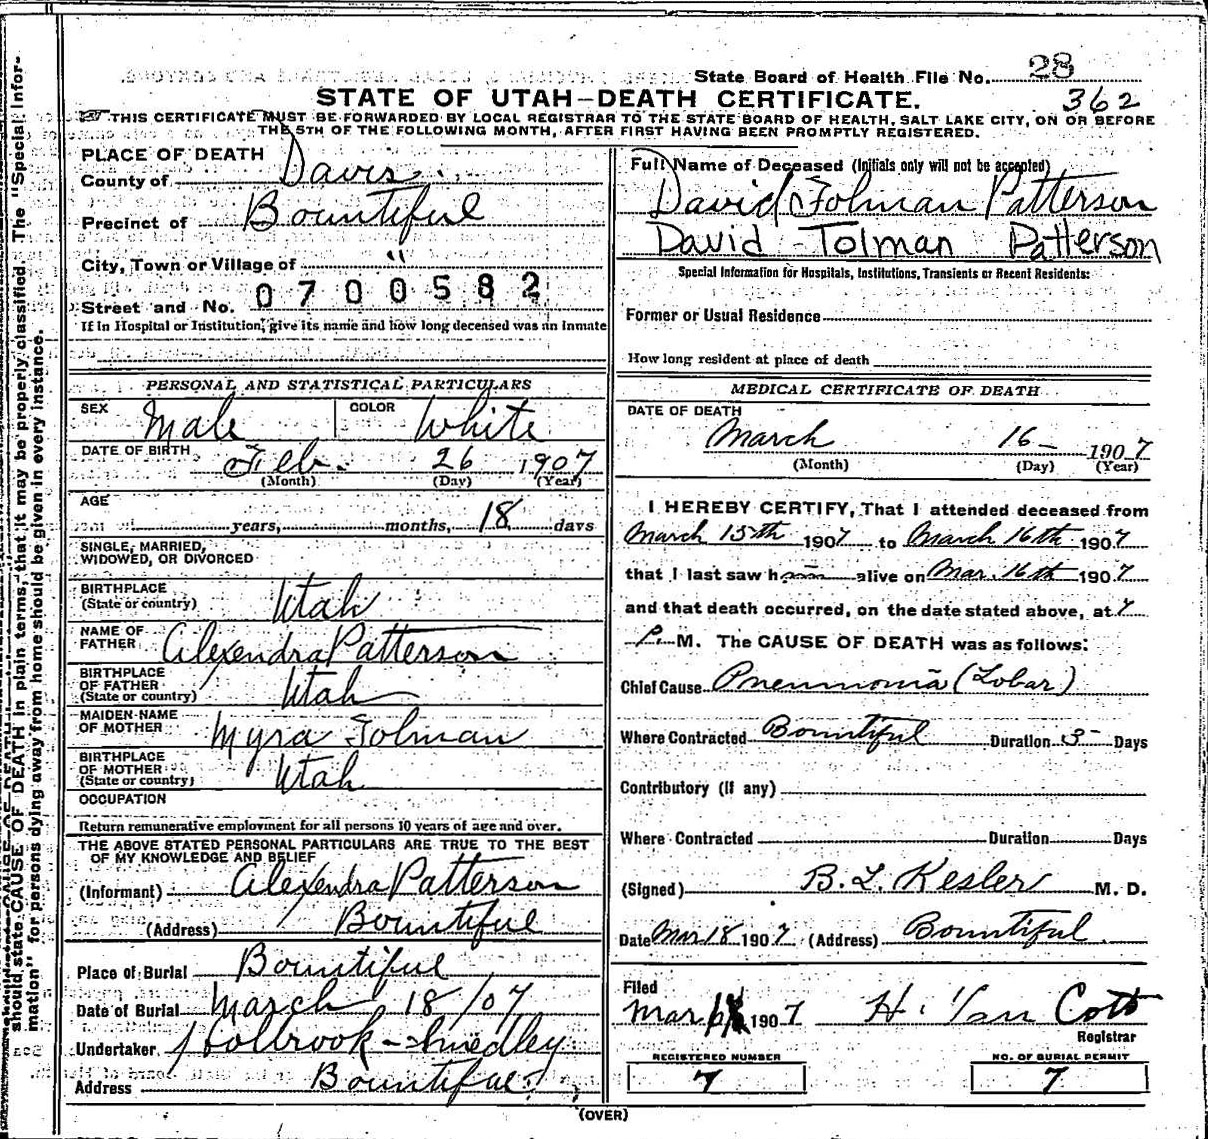 State Board of Health File No. 28
STATE OF UTAH—DEATH CERTIFICATE. 362
THIS CERTIFICATE MUST BE FORWARDED BY LOCAL REGISTRAR TO THE STATE BOARD OF HEALTH, SALT LAKE CITY, ON OR BEFORE
THE 5TH OF THE FOLLOWING MONTH, AFTER FIRST HAVING BEEN PROMPTLY REGISTERED.
PLACE OF DEATH
County of Davis
Precinct of Bountiful
City, Town or Village of "
Street and No. 0700582
If in Hospital or Institution, give its name and how long deceased was an inmate
PERSONAL AND STATISTICAL PARTICULARS
SEX Male COLOR White
DATE OF BIRTH Feb. 26 1907
(Month) (Day) (Year)
AGE
years, months, 18 days
SINGLE, MARRIED,
WIDOWED, OR DIVORCED
BIRTHPLACE
(State or country) Utah
NAME OF
FATHER Alexendra Patterson
BIRTHPLACE
OF FATHER
(State or country) Utah
MAIDEN NAME
OF MOTHER Myra Tolman
BIRTHPLACE
OF MOTHER
(State or country) Utah
OCCUPATION
Return remunerative employment for all persons 10 years of age and over.
THE ABOVE STATED PERSONAL PARTICULARS ARE TRUE TO THE BEST
OF MY KNOWLEDGE AND BELIEF
(Informant) Alexendra Patterson
(Address) Bountiful
Place of Burial Bountiful
Date of Burial March 18/07
Undertaker Holbrook - Smedley
Address Bountiful
Full Name of Deceased (Initials only will not be accepted)
David Tolman Patterson
David Tolman Patterson
Special Information for Hospitals, Institutions, Transients or Recent Residents:
Former or Usual Residence
How long resident at place of death
MEDICAL CERTIFICATE OF DEATH
DATE OF DEATH
March 16 1907
(Month) (Day) (Year)
I HEREBY CERTIFY, That I attended deceased from
March 15th 1907 to March 16th 1907
that I last saw h alive on Mar. 16th 1907
and that death occurred, on the date stated above, at 7
P. M. The CAUSE OF DEATH was as follows:
Chief Cause Pneumonia (Lobar)
Where Contracted Bountiful Duration Days
Contributory (if any)
Where Contracted Duration Days
(Signed) B. L. Kesler M. D.
Date Mar 18 1907 (Address) Bountiful
Filed
Mar 1907 H. Van Cott
Registrar
REGISTERED NUMBER
7
NO. OF BURIAL PERMIT
7
(OVER)
should state CAUSE OF DEATH in plain terms, that it may be properly classified. The "Special Infor-
mation" for persons dying away from home should be given in every instance.